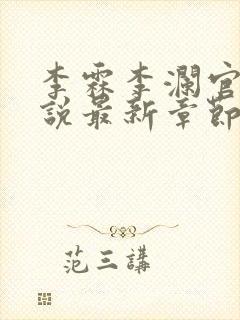 李霖李瀾官
說最新章節
范三講